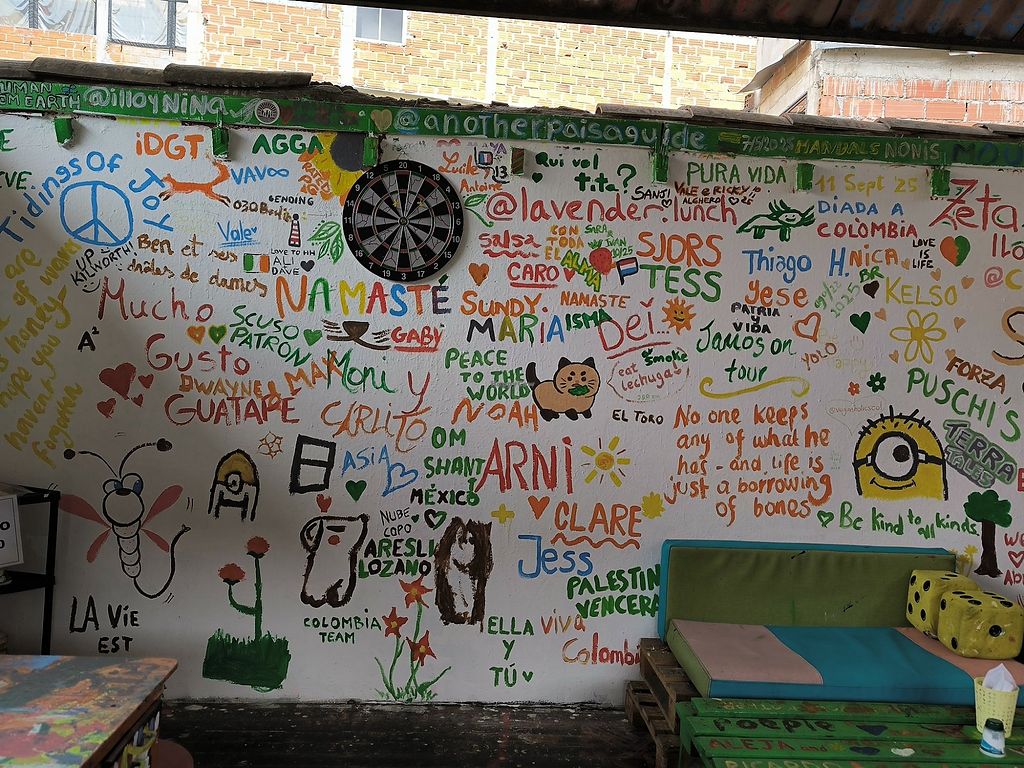 HUMAN
OM EARTH
@illoyNina
@anotherpaisaguide
MANUALS NONIS
Tidings Of
Joy
iDGT
AGGA
VAV∞
6ENDING
Vale
UP
KILWORTH!
Ben et ses
drôles de dames
LOVE TO HH
ALI
DAVE
20
Lucile
Antoine
13
Qui vol
tita?
SANJI
VALE e RICKY
ALGHERO
PURA VIDA
11 Sept '25
Zeta
@lavender.lunch
DIADA A
COLOMBIA
salsa
CON
TODA
EL
ALMA
SARA
IVAN
2025
SJORS
TESS
CARO
Thiago H.
NICA
LOVE
IS
LIFE
NAMASTE
SUNDY.
NAMASTE
MARIA
ISMA
Dei...
yese
PATRIA
y
VIDA
2025 BR
KELSO
Mucho
Gusto
SCUSO
PATRON
GABY
A²
Jamos on
tour
YOLO
DWAYNE
MAX
GUATAPE
Moni y
CARLITO
PEACE
TO THE
WORLD
NOAH
eat
lechuga!
smoke
EL TORO
FORZA
PUSCHI'S
TERRA
TALES
are
of wans
hope you
haven't
forgotten
No one keeps
any of what he
has - and life is
just a borrowing
of bones
@veganholicscol
OM
SHANTI
ARNI
ASIA
MÉXICO
NUBE
COPO
ARESLI
LOZANO
CLARE
Jess
Be kind to all kinds
PALESTIN
VENCERA
LA VIE
EST
COLOMBIA
TEAM
ELLA
Y
TÚ
viva
Colombi
PEOPLE
ALEJA and
RICARDO